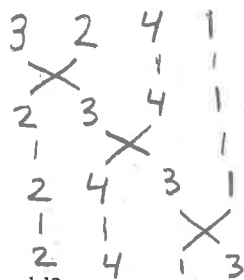 3 2 4 1
2 3 4 1
2 4 3 1
2 4 1 3